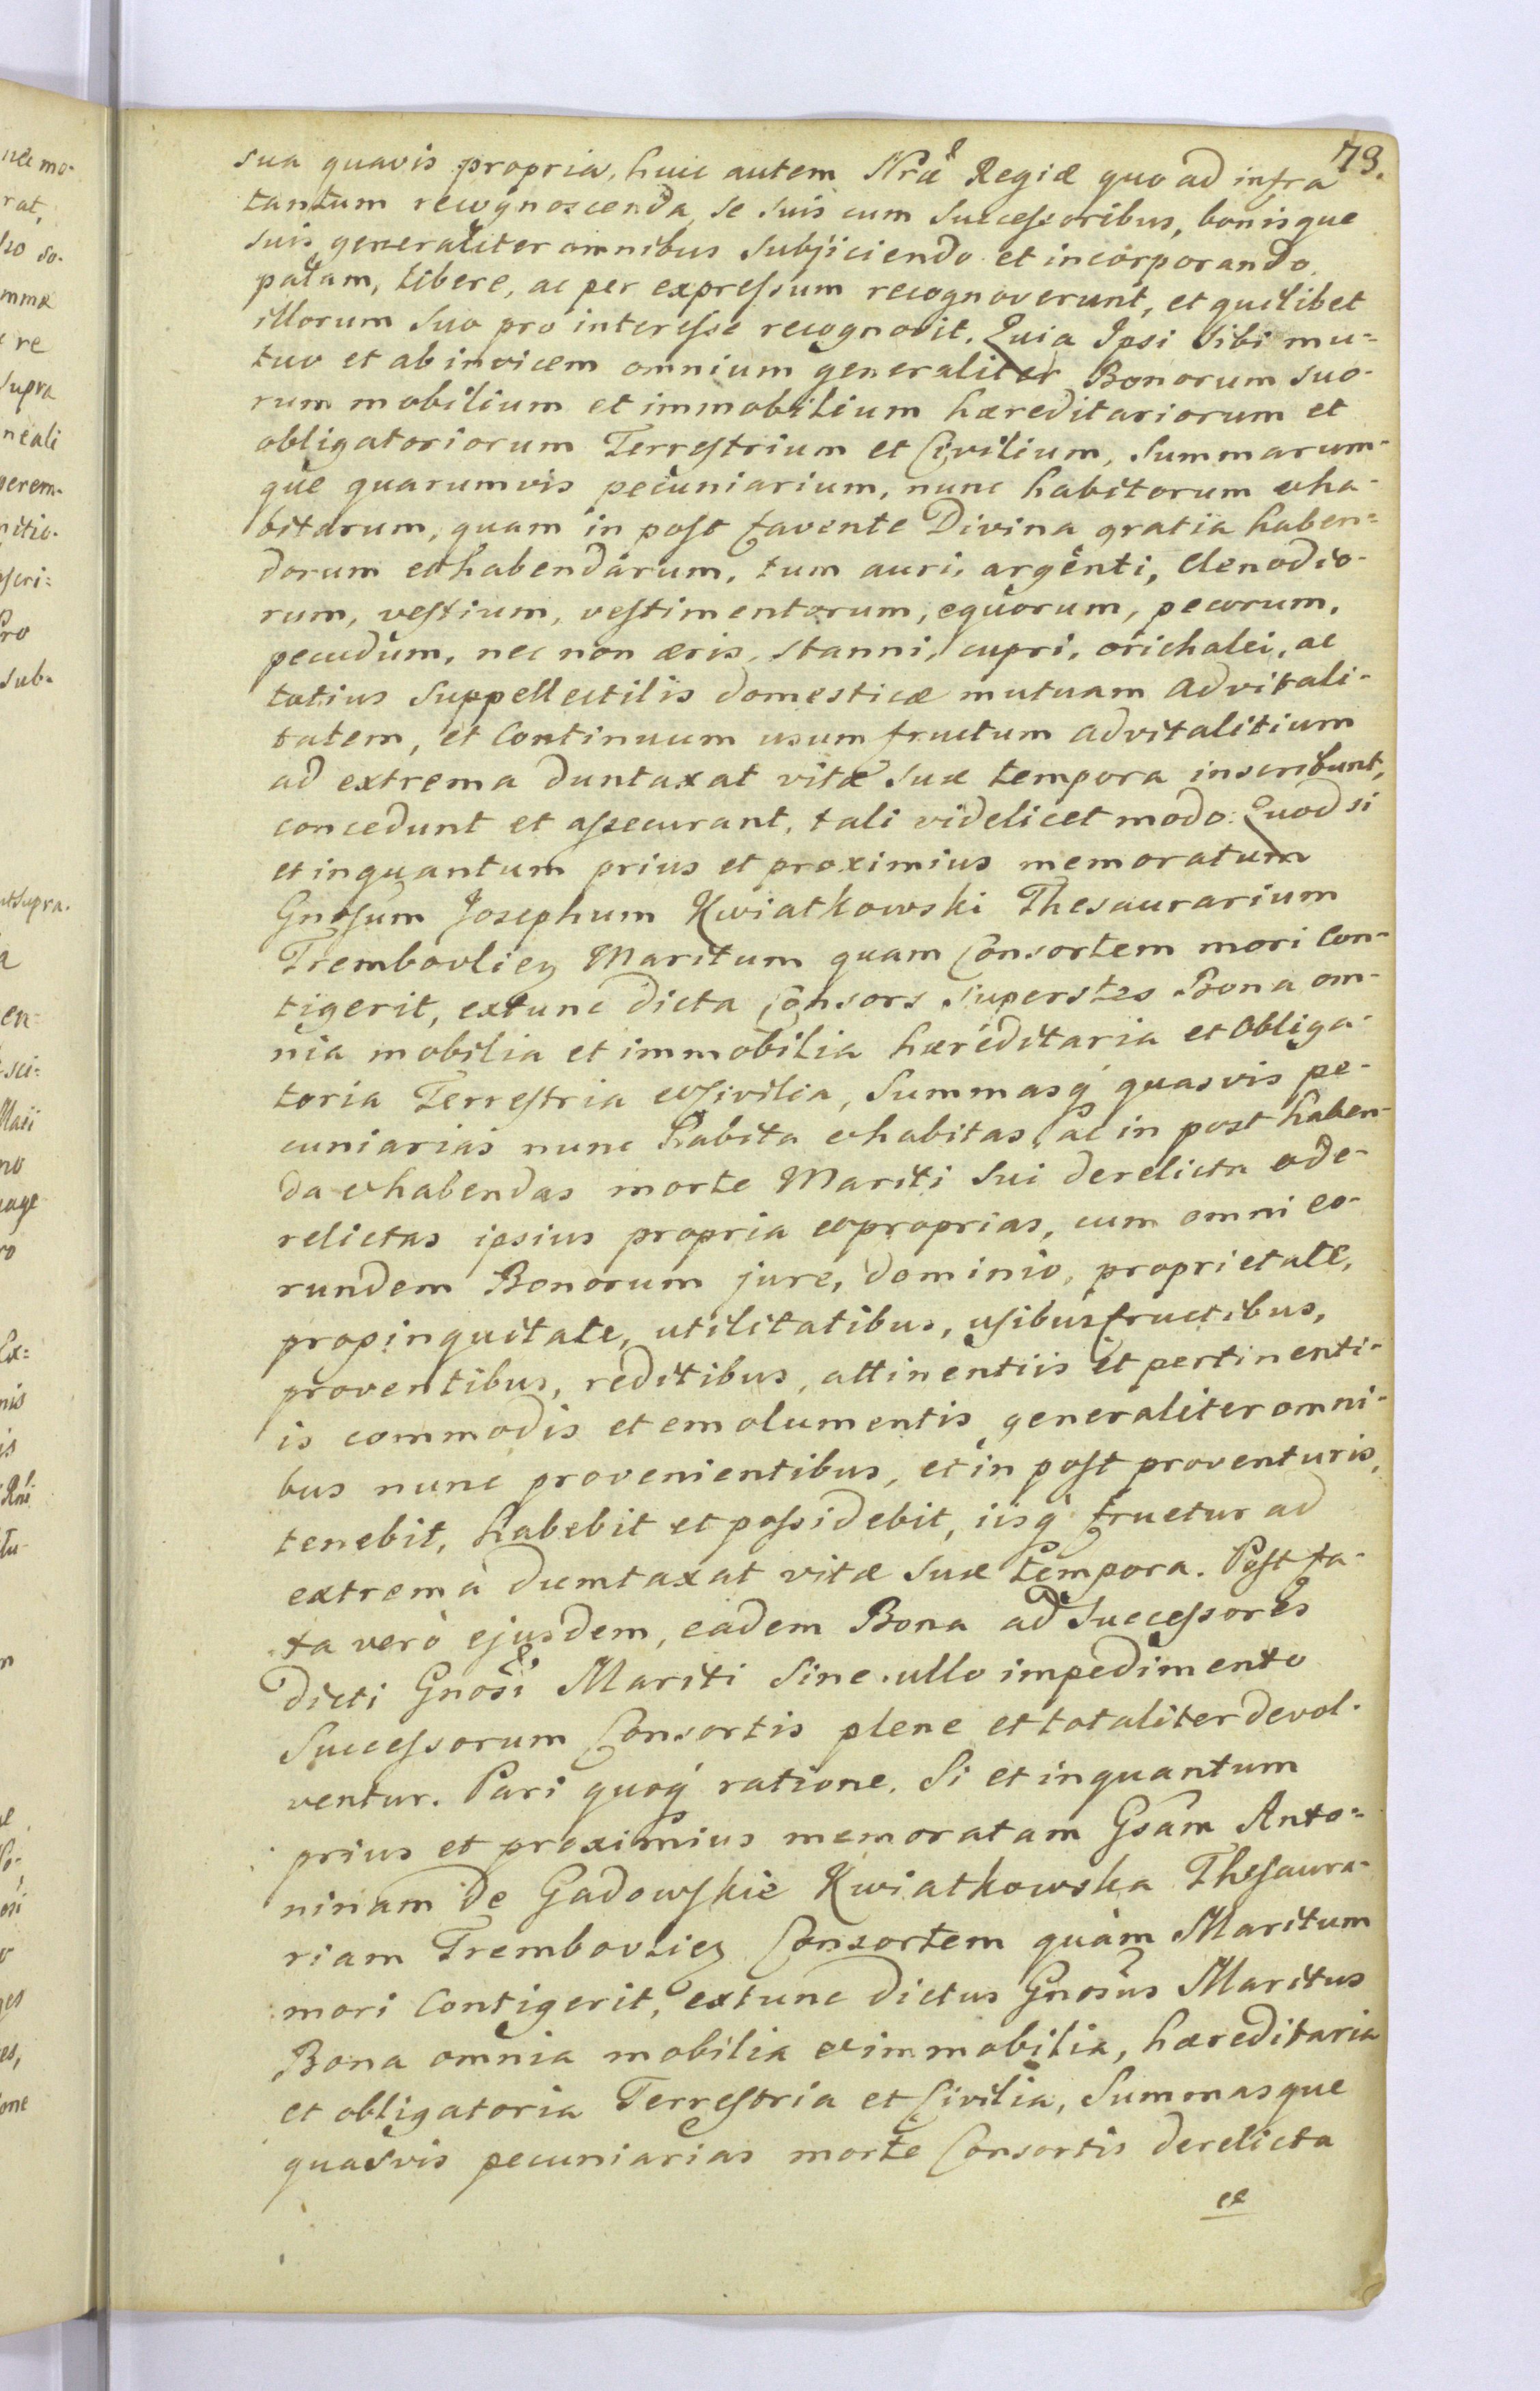 73.
sua quavis propria, huic autem Nrae Regiæ quo ad infra
tantum recognoscenda, se suis cum Successoribus, bonisque
suis generaliter omnibus Subjiciendo et incorporando,
palam, libere, ac per expressum recognoverunt, et quilibet
illorum suo pro interesse recognovit. Quia Ipsi sibi mu=
tuo et ab invicem omnium generaliter Bonorum suo-
rum mobilium et immobilium hæreditariorum et
obligatoriorum Terrestrium et Civilium, Summarum-
que quarumvis pecuniarium, nunc habitorum & ha-
bitarum, quam in post favente Divina gratia haben=
dorum & habendarum, tum auri, argenti, Clenodio-
rum, vestium, vestimentorum, equorum, pecorum,
pecudum, nec non æris, stanni, cupri, orichalci, ac
totius Suppellectilis domesticæ mutuam advitali-
tatem, et Continuum usumfructum advitalitium
ad extrema duntaxat vitæ suæ tempora inscribunt,
concedunt et assecurant, tali videlicet modo: Quod si
et inquantum prius et proximius memoratum
Gnosum Josephum Kwiatkowski Thesaurarium
Trembovlien Maritum quam Consortem mori con-
tigerit, extunc dicta Consors Superstes Bona om-
nia mobilia et immobilia hæreditaria et Obliga-
toria Terrestria & Civilia, Summasq́ quasvis pe-
cuniarias nunc habita & habitas, ac in post haben-
da & habendas morte Mariti sui derelicta & de-
relictas ipsius propria & proprias, cum omni eo-
rundem Bonorum jure, dominio, proprietate,
propinquitate, utilitatibus, usibusfructibus,
proventibus, reditibus, attinentiis et pertinenti-
is commodis et emolumentis generaliter omni-
bus nunc provenientibus, et in post proventuris,
tenebit, habebit et possidebit, iisq́ fruetur ad
extrema dumtaxat vitæ suæ tempora. Post fa-
ta verò ejusdem, eadem Bona ad Successores
dicti Gnosi Mariti sine ullo impedimento
Successorum Consortis plene et totaliter devol-
ventur. Pari quoq́ ratione, Si et inquantum
prius et proximius memoratam Gsam Anto=
ninam de Gadowskie Kwiatkowska Thesaura-
riam Trembovlien Consortem quàm Maritum
mori Contigerit, extunc dictus Gnosus Maritus
Bona omnia mobilia & immobilia, hæreditaria
et obligatoria Terrestria et Civilia, Summasque
quasvis pecuniarias morte Consortis derelicta
et